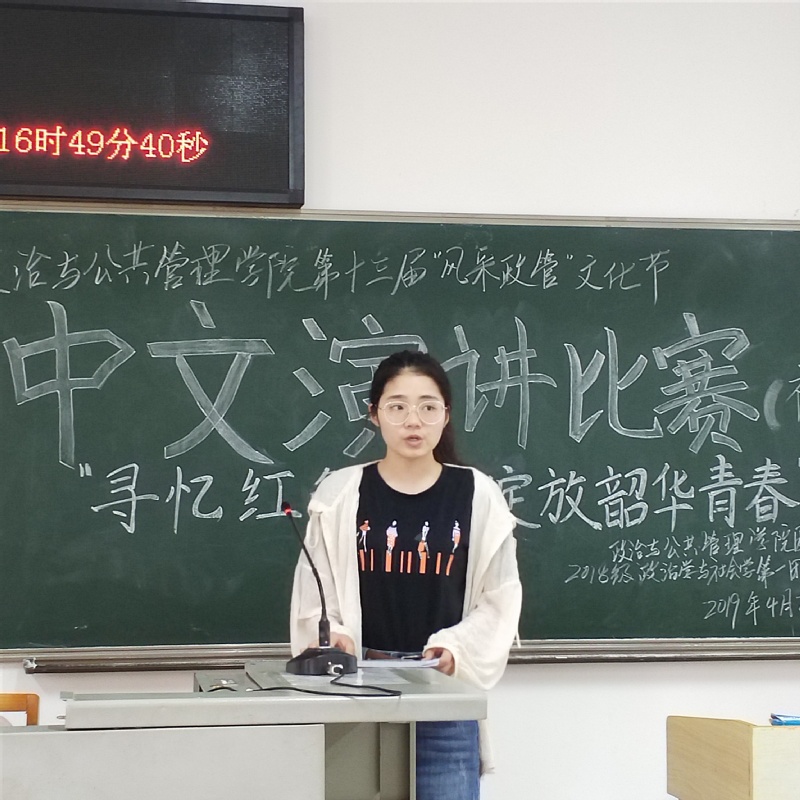 16时49分40秒
治与公共管理学院第十三届"风采政管"文化节
中文演讲比赛(
"寻忆红 绽放韶华青春"
政治与公共管理学院
2018级政治学与社会学第一团
2019年4月